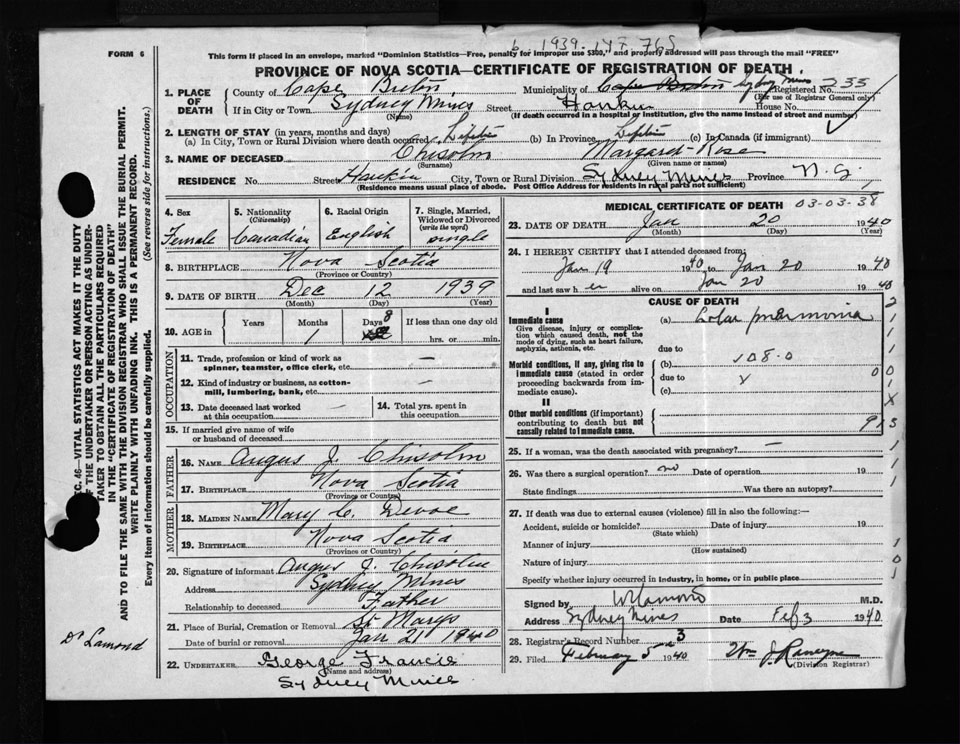 FORM 6
This form if placed in an envelope, marked "Dominion Statistics—Free, penalty for improper use $300," and properly addressed will pass through the mail "FREE"
PROVINCE OF NOVA SCOTIA—CERTIFICATE OF REGISTRATION OF DEATH
1. PLACE OF DEATH
County of Cape Breton Municipality of Cape Breton Sydney Mines Registered No. 235
(For use of Registrar General only)
If in City or Town Sydney Mines Street House No.
(Name) (If death occurred in a hospital or institution, give the name instead of street and number)
2. LENGTH OF STAY (in years, months and days)
(a) In City, Town or Rural Division where death occurred Lifetime (b) In Province Lifetime (c) In Canada (if immigrant)
3. NAME OF DECEASED Chisolm Margaret Rose
(Surname) (Given name or names)
RESIDENCE No. Street Hankin City, Town or Rural Division Sydney Mines Province N.S.
(Residence means usual place of abode. Post Office Address for residents in rural parts not sufficient)
4. Sex
Female
5. Nationality (Citizenship)
Canadian
6. Racial Origin
English
7. Single, Married, Widowed or Divorced (write the word)
single
8. BIRTHPLACE Nova Scotia
(Province or Country)
9. DATE OF BIRTH Dec 12 1939
(Month) (Day) (Year)
10. AGE in Years Months Days If less than one day old
1 8 hrs. or min.
OCCUPATION
11. Trade, profession or kind of work as spinner, teamster, office clerk, etc. —
12. Kind of industry or business, as cotton-mill, lumbering, bank, etc. —
13. Date deceased last worked at this occupation —
14. Total yrs. spent in this occupation
15. If married give name of wife or husband of deceased
FATHER
16. NAME Angus J. Chisolm
17. BIRTHPLACE Nova Scotia
(Province or Country)
MOTHER
18. MAIDEN NAME Mary C. Devoe
19. BIRTHPLACE Nova Scotia
(Province or Country)
20. Signature of informant Angus J. Chisolm
Address Sydney Mines
Relationship to deceased Father
21. Place of Burial, Cremation or Removal St Marys
Date of burial or removal Jan 21 1940
22. UNDERTAKER George Francis
(Name and address)
Sydney Mines
MEDICAL CERTIFICATE OF DEATH 03-03-38
23. DATE OF DEATH Jan 20 1940
(Month) (Day) (Year)
24. I HEREBY CERTIFY that I attended deceased from:
Jan 19 1940 to Jan 20 1940
and last saw her alive on Jan 20 1940
CAUSE OF DEATH
I
Immediate cause (a) Lobar pneumonia
Give disease, injury or complication which caused death, not the mode of dying, such as heart failure, asphyxia, asthenia, etc.
due to
Morbid conditions, if any, giving rise to immediate cause (stated in order proceeding backwards from immediate cause).
(b) 108.0
due to
(c)
II
Other morbid conditions (if important) contributing to death but not causally related to immediate cause.
25. If a woman, was the death associated with pregnancy? —
26. Was there a surgical operation? no Date of operation 19
State findings Was there an autopsy?
27. If death was due to external causes (violence) fill in also the following:—
Accident, suicide or homicide? Date of injury 19
(State which)
Manner of injury
(How sustained)
Nature of injury
Specify whether injury occurred in industry, in home, or in public place
Signed by M.D.
Address Sydney Mines Date Feb 3 1940
28. Registrar's Record Number 3
29. Filed February 5 1940
(Division Registrar)
WRITE PLAINLY WITH UNFADING INK. THIS IS A PERMANENT RECORD.
Every item of information should be carefully supplied. (See reverse side for instructions.)
46—VITAL STATISTICS ACT MAKES IT THE DUTY OF THE UNDERTAKER OR PERSON ACTING AS UNDERTAKER TO OBTAIN ALL THE PARTICULARS REQUIRED IN THE "CERTIFICATE OF REGISTRATION OF DEATH" AND TO FILE THE SAME WITH THE DIVISION REGISTRAR WHO SHALL ISSUE THE BURIAL PERMIT.
Dr Lamond